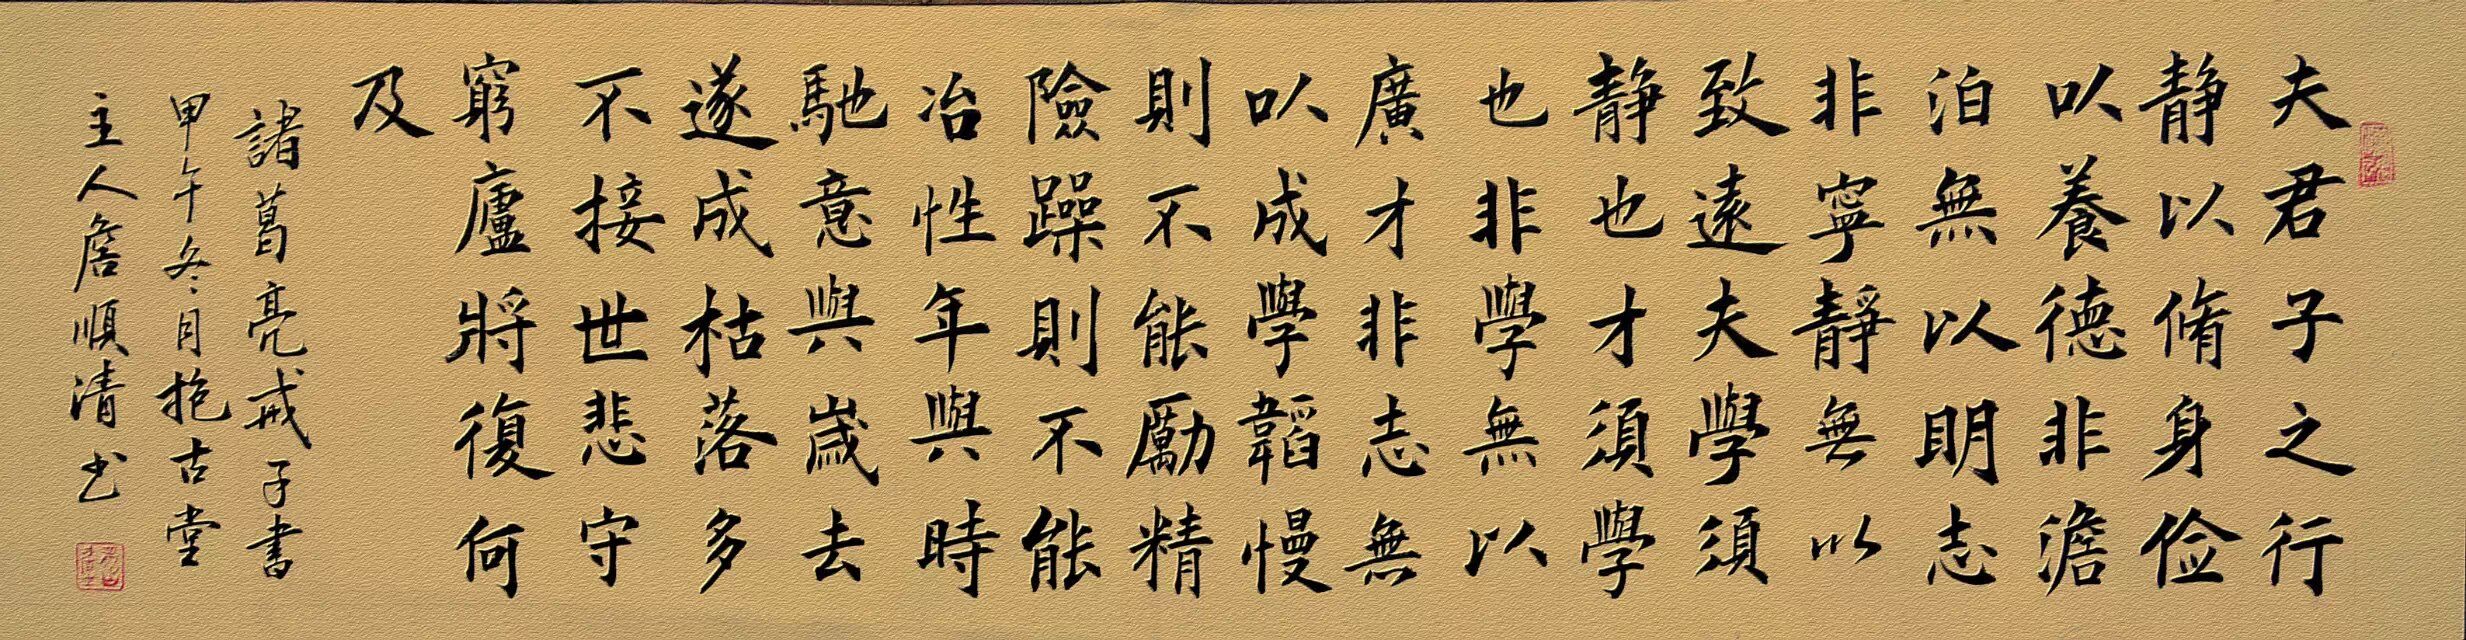 夫君子之行
静以脩身俭
以養德非澹
泊無以明志
非寧静無以
致遠夫學須
静也才須學
也非學無以
廣才非志無
以成學韜慢
則不能勵精
險躁則不能
冶性年與時
馳意與歲去
遂成枯落多
不接世悲守
窮廬將復何
及
諸葛亮戒子書
甲午冬月抱古堂
主人詹順清书